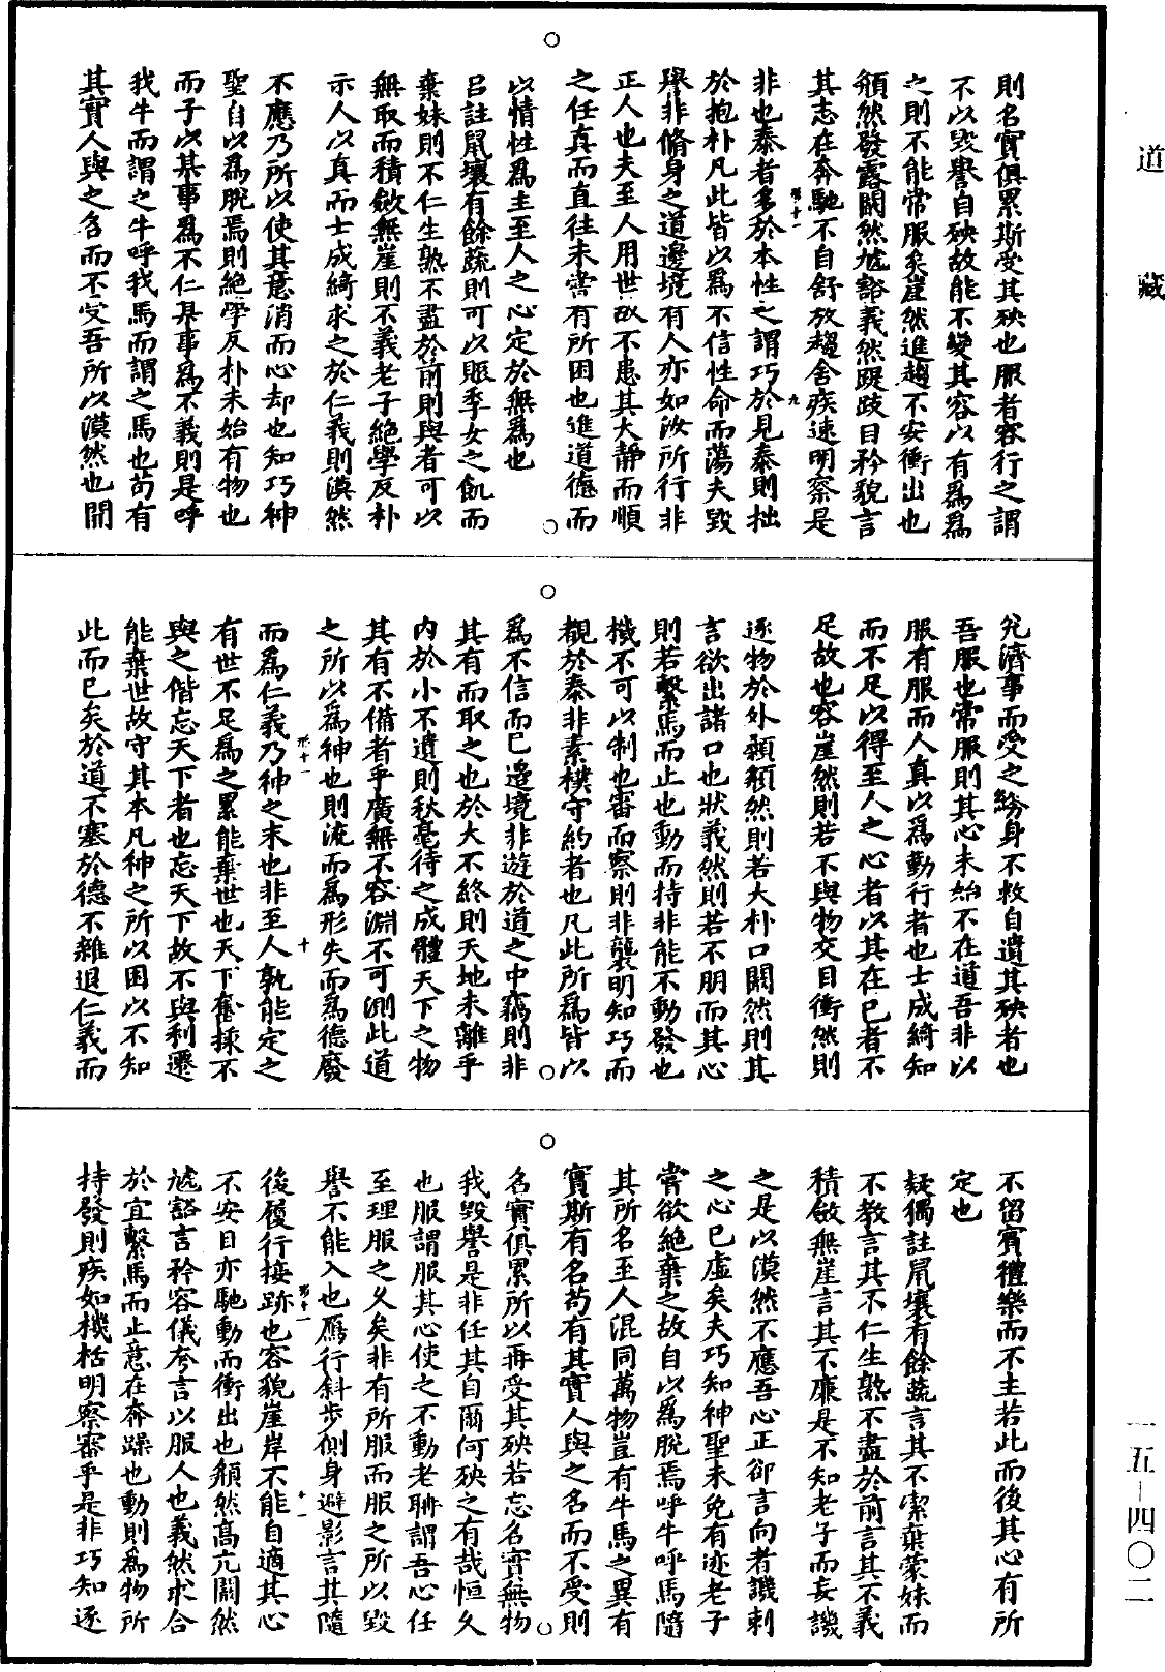 道藏
則名實俱累斯受其殃也服者容行之謂
不以毀譽自殃故能不變其容以有爲爲
之則不能常服矣崖然進趨不安衝出也
頯然發露闞然虓豁義然踶跂目矜貌言
其志在奔馳不自舒放趨舍疾速明察是
非也泰者多於本性之謂巧於見泰則拙
於抱朴凡此皆以爲不信性命而蕩夫毀
譽非脩身之道邊境有人亦如汝所行非
正人也夫至人用世故不患其大静而順
之任真而直往未甞有所困也進道德而
以情性爲主至人之心定於無爲也
吕註鼠壤有餘蔬則可以賑季女之飢而
棄妹則不仁生熟不盡於前則與者可以
無取而積斂無崖則不義老子絶學反朴
示人以真而士成綺求之於仁義則漠然
不應乃所以使其意消而心却也知巧神
聖自以爲脱焉則絶學反朴未始有物也
而子以其事爲不仁其事爲不義則是呼
我牛而謂之牛呼我馬而謂之馬也苟有
其實人與之名而不受吾所以漠然也開
形十一
九
兊濟事而受之終身不救自遺其殃者也
吾服也常服則其心未始不在道吾非以
服有服而人真以爲動行者也士成綺知
而不足以得至人之心者以其在己者不
足故也容崖然則若不與物交目衝然則
逐物於外顙頯然則若大朴口闞然則其
言欲出諸口也狀義然則若不朋而其心
則若繫馬而止也動而持非能不動發也
機不可以制也審而察則非襲明知巧而
覩於泰非素樸守約者也凡此所爲皆以
爲不信而已邊境非遊於道之中竊則非
其有而取之也於大不終則天地未離乎
内於小不遺則秋毫待之成體天下之物
其有不備者乎廣無不容淵不可測此道
之所以爲神也則流而爲形失而爲德廢
而爲仁義乃神之末也非至人孰能定之
有世不足爲之累能棄世也天下奮棅不
與之偕忘天下者也忘天下故不與利遷
能棄世故守其本凡神之所以困以不知
此而已矣於道不塞於德不雜退仁義而
形十一
十
不留賓禮樂而不主若此而後其心有所
定也
疑獨註鼠壤有餘蔬言其不潔棄蒙妹而
不教言其不仁生熟不盡於前言其不義
積斂無崖言其不廉是不知老子而妄譏
之是以漠然不應吾心正卻言向者譏刺
之心已虛矣夫巧知神聖未免有迹老子
甞欲絶棄之故自以爲脱焉呼牛呼馬隨
其所名至人混同萬物豈有牛馬之異有
實斯有名苟有其實人與之名而不受則
名實俱累所以再受其殃若忘名實無物
我毀譽是非任其自爾何殃之有哉恒久
也服謂服其心使之不動老聃謂吾心任
至理服之久矣非有所服而服之所以毀
譽不能入也鴈行斜步側身避影言其隨
後履行接跡也容貌崖岸不能自適其心
不安目亦馳動而衝出也頯然高亢闞然
虓豁言矜容儀夸言以服人也義然求合
於宜繫馬而止意在奔躁也動則爲物所
持發則疾如機栝明察審乎是非巧知逐
形十一
十一
一五—四〇二